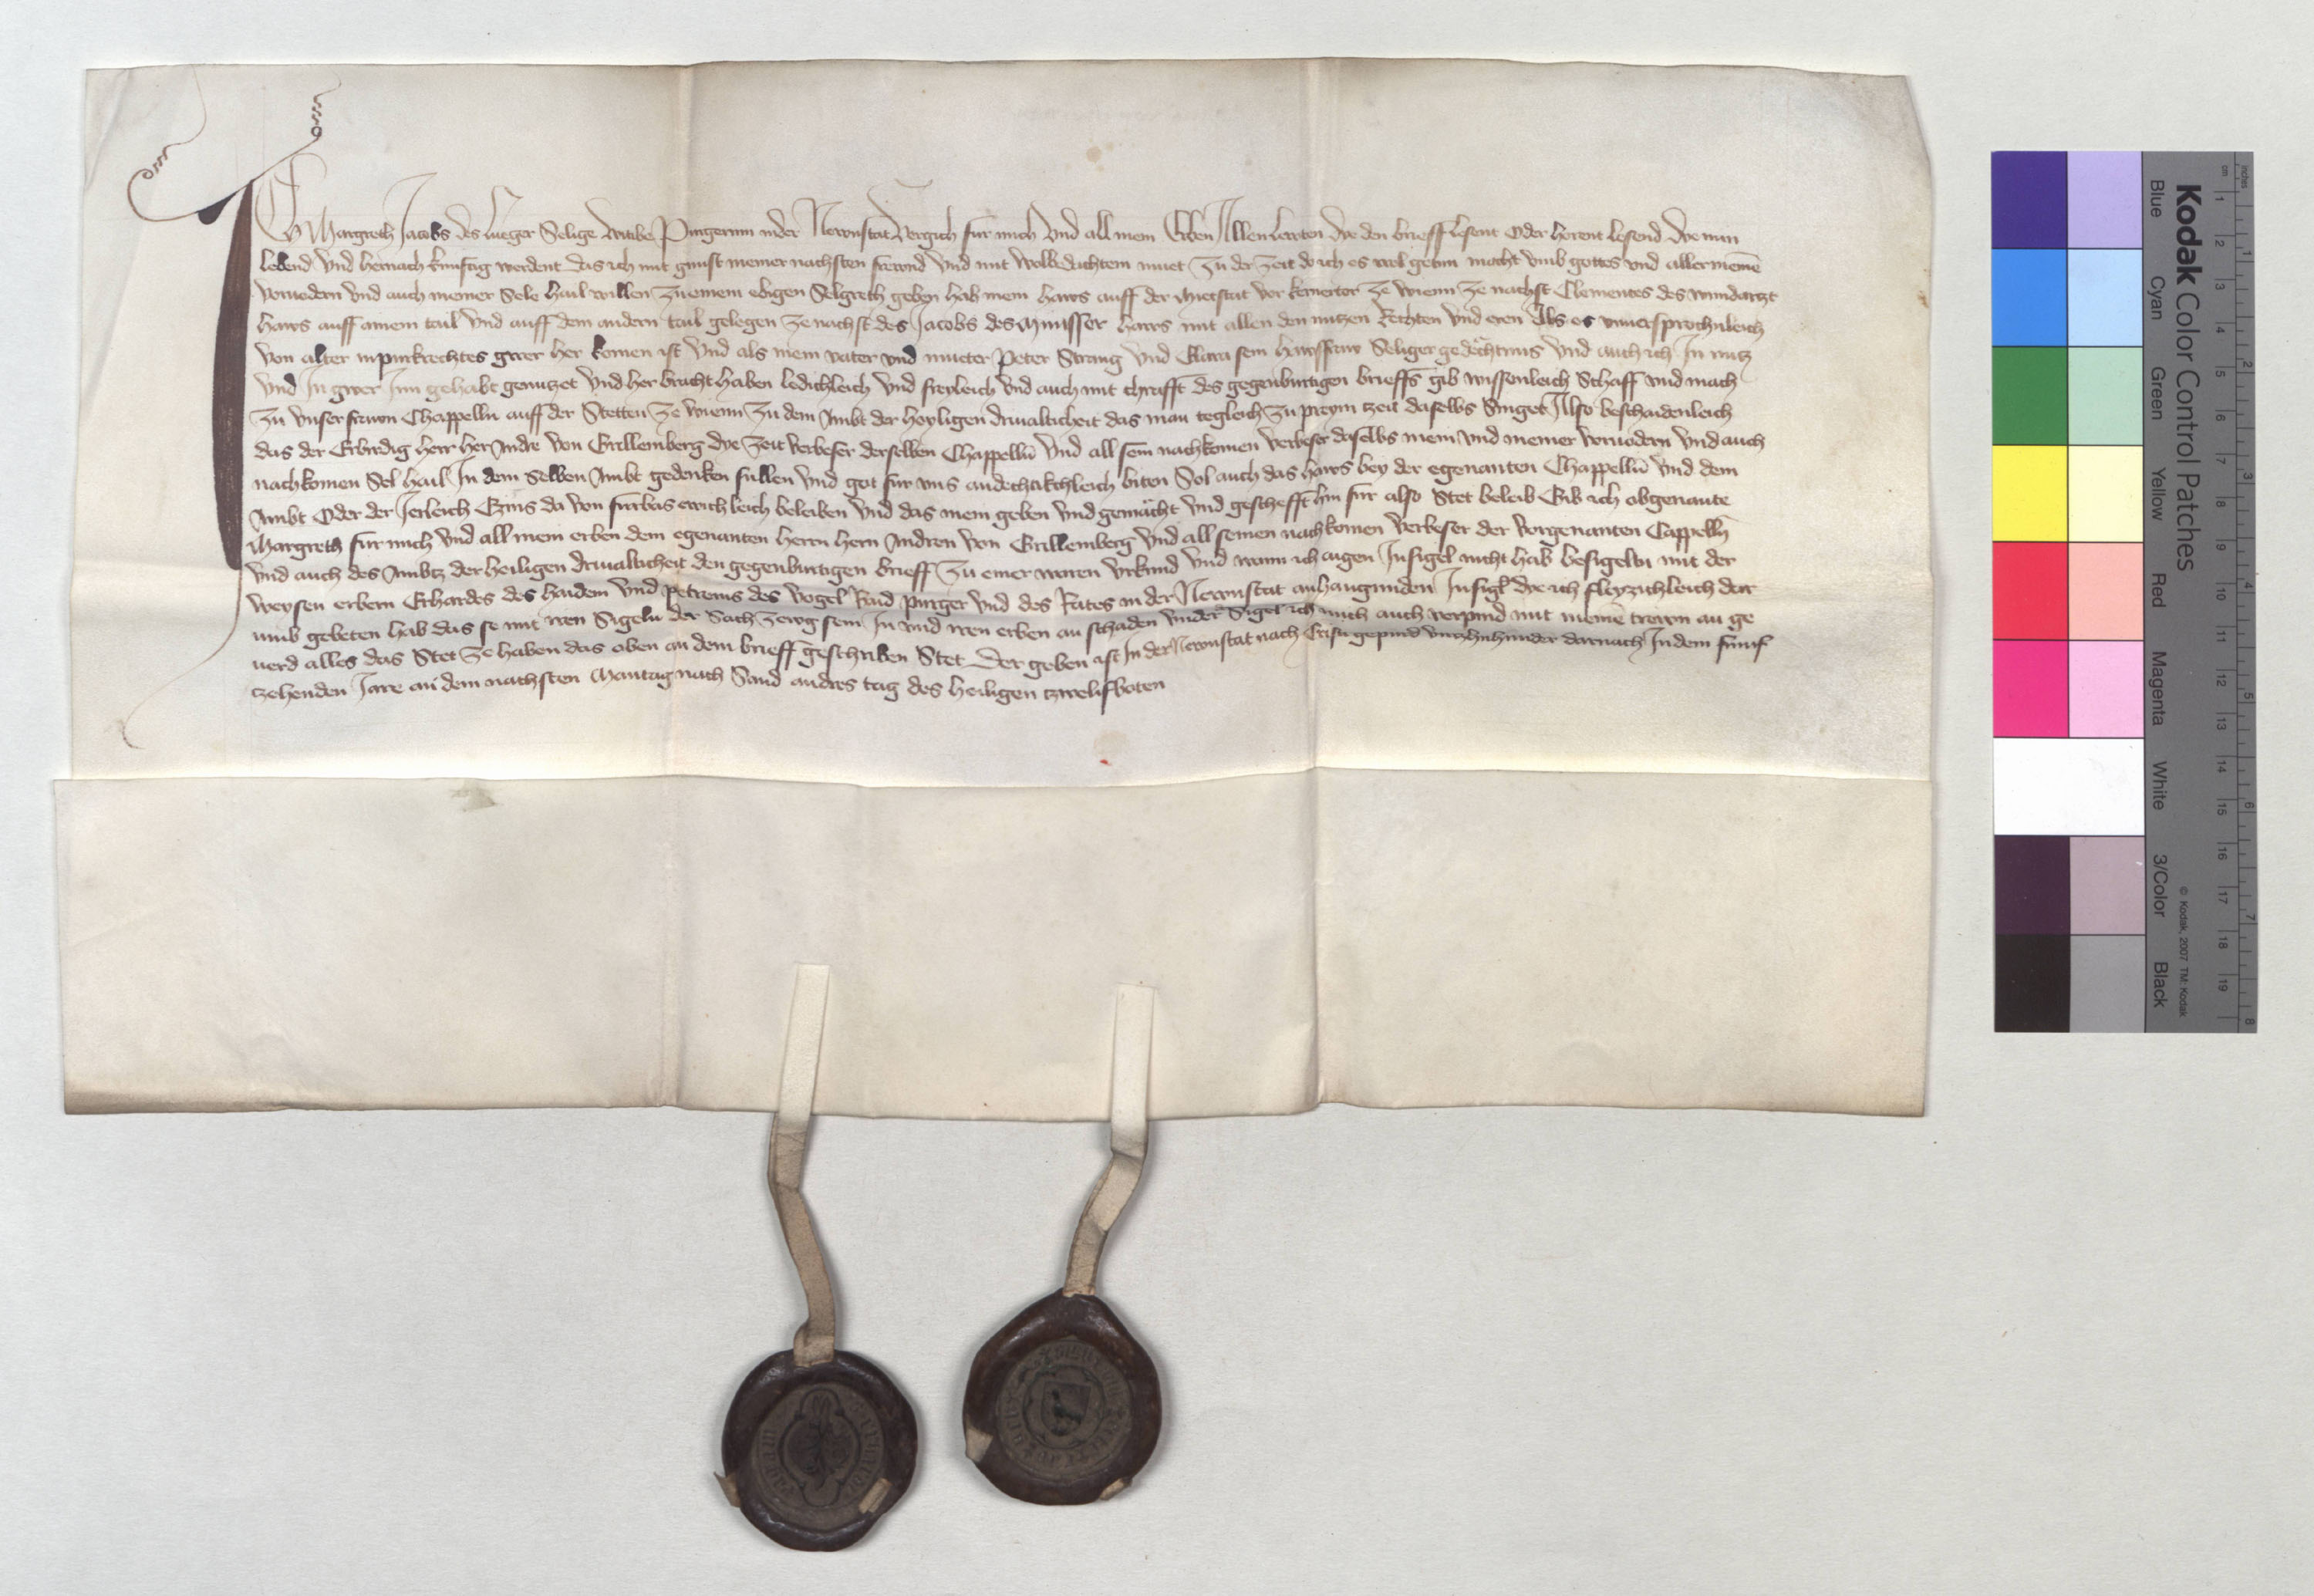 ICh Margreth Jacobs des Lueger Selige witibe Purgerinn in der Newnstat Vergich fur mich Vnd all mein Erben Allen Lewten dye den brieff lesent Oder horent lesend dye nun
lebend Vnd hernach kunftig werdent das ich mit gunst meiner nachsten frewnd Vnd mit wolbedachtem muet Zu der Zeit do ich es wol getun mocht vmb gottes vnd aller meinē
vorvodern Vnd auch meiner Sele hail willen Zu einem ebigen Selgreth geben hab mein haws auff der Mietstat vor kernertor Ze wienn Ze nachst Clementes des wundartzt
haws auff ainem tail Vnd auff dem andern tail gelegen Ze nachst des Jacobs des Minnsser haws mit allen den nutzen Rechten vnd eren Als es vnuersprochnleich
Von alter in purkrechtes gwer her komen ist Vnd als mein vater vnd mueter Peter Strang Vnd Clara sein hawsfraw Seliger gedechtnus Vnd auch ich In nutz
Vnd In gwer Inn gehabt genutzet Vnd her bracht haben ledichleich Vnd freyleich Vnd auch mit chrafft des gegenburtigen brieffs gib wissenleich Schaff vnd mach
Zu Vnser frawn Chappelln auff der Stetten Ze wienn Zu dem Ambt der heyligen driualticheit das man tegleich Zu preym tzeit daselbs Singet Also beschaidenleich
das der Erbirdig herr her Andre Von Grillemberg dye Zeit Verbeser derselben Chappelln̄ Vnd all sein nachkomen Verbeser daselbs mein Vnd meiner Vorvodern Vnd auch
nachkomen Sel hail In dem Selben Ambt gedenken sullen Vnd got fur vns andechtikchleich biten Sol auch das haws bey der egenanten Chappelln̄ Vnd dem
Ambt Oder der Jerleich Czins da von furbas ewichleich beleiben Vnd das mein geben Vnd gemächt Vnd geschefft hin fur also Stet beleib Gib ich obgenante
Margreth fur mich Vnd all mein erben dem egenanten herrn hern Andren Von Grillemberg Vnd all seinen nachkomen Verbeser der Vorgenanten Cappelln̄
Vnd auch des Ambtz der heiligen driualticheit den gegenburtigen brieff Zu einer waren Vrkund Vnd wann ich aigen Insigel nicht hab besigeltn mit der
weysen erbern Erhardes des haidem Vnd Petreins des Vogel Baid purger Vnd des Rates in der Newnstat anhangunden Insigl dye ich fleyzichleich dar
umb gebeten hab das se mit iren Sigeln der Sach Zewg sein In vnd iren erben an schaden Vnder Sigel ich mich auch verpind mit meinē trewn an ge
uerd alles das Stet Ze haben das oben an dem brieff geschriben Stet Der geben ist In der Newnstat nach Cristi gepurd virtzhnhunder darnach In dem funf
tzehenden Jare an dem nachsten Mantag nach Sand andres tag des heiligen tzwelifboten
Kodak Color Control Patches
Blue Cyan Green Yellow Red Magenta White 3/Color Black
© Kodak, 2007 TM: Kodak
cm 1 2 3 4 5 6 7 8 9 10 11 12 13 14 15 16 17 18 19
inches 1 2 3 4 5 6 7 8